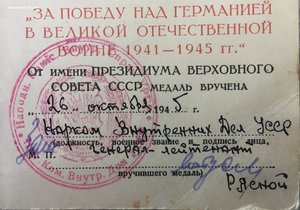 „ЗА ПОБЕДУ НАД ГЕРМАНИЕЙ
В ВЕЛИКОЙ ОТЕЧЕСТВЕННОЙ
ВОЙНЕ 1941—1945 гг.“
От имени ПРЕЗИДИУМА ВЕРХОВНОГО
СОВЕТА СССР МЕДАЛЬ ВРУЧЕНА
„26“ октября 1945
Нарком Внутренних Дел УССР
(должность, военное звание и подпись лица,
М. П. Генерал-лейтенант
вручившего медаль)
Рясной